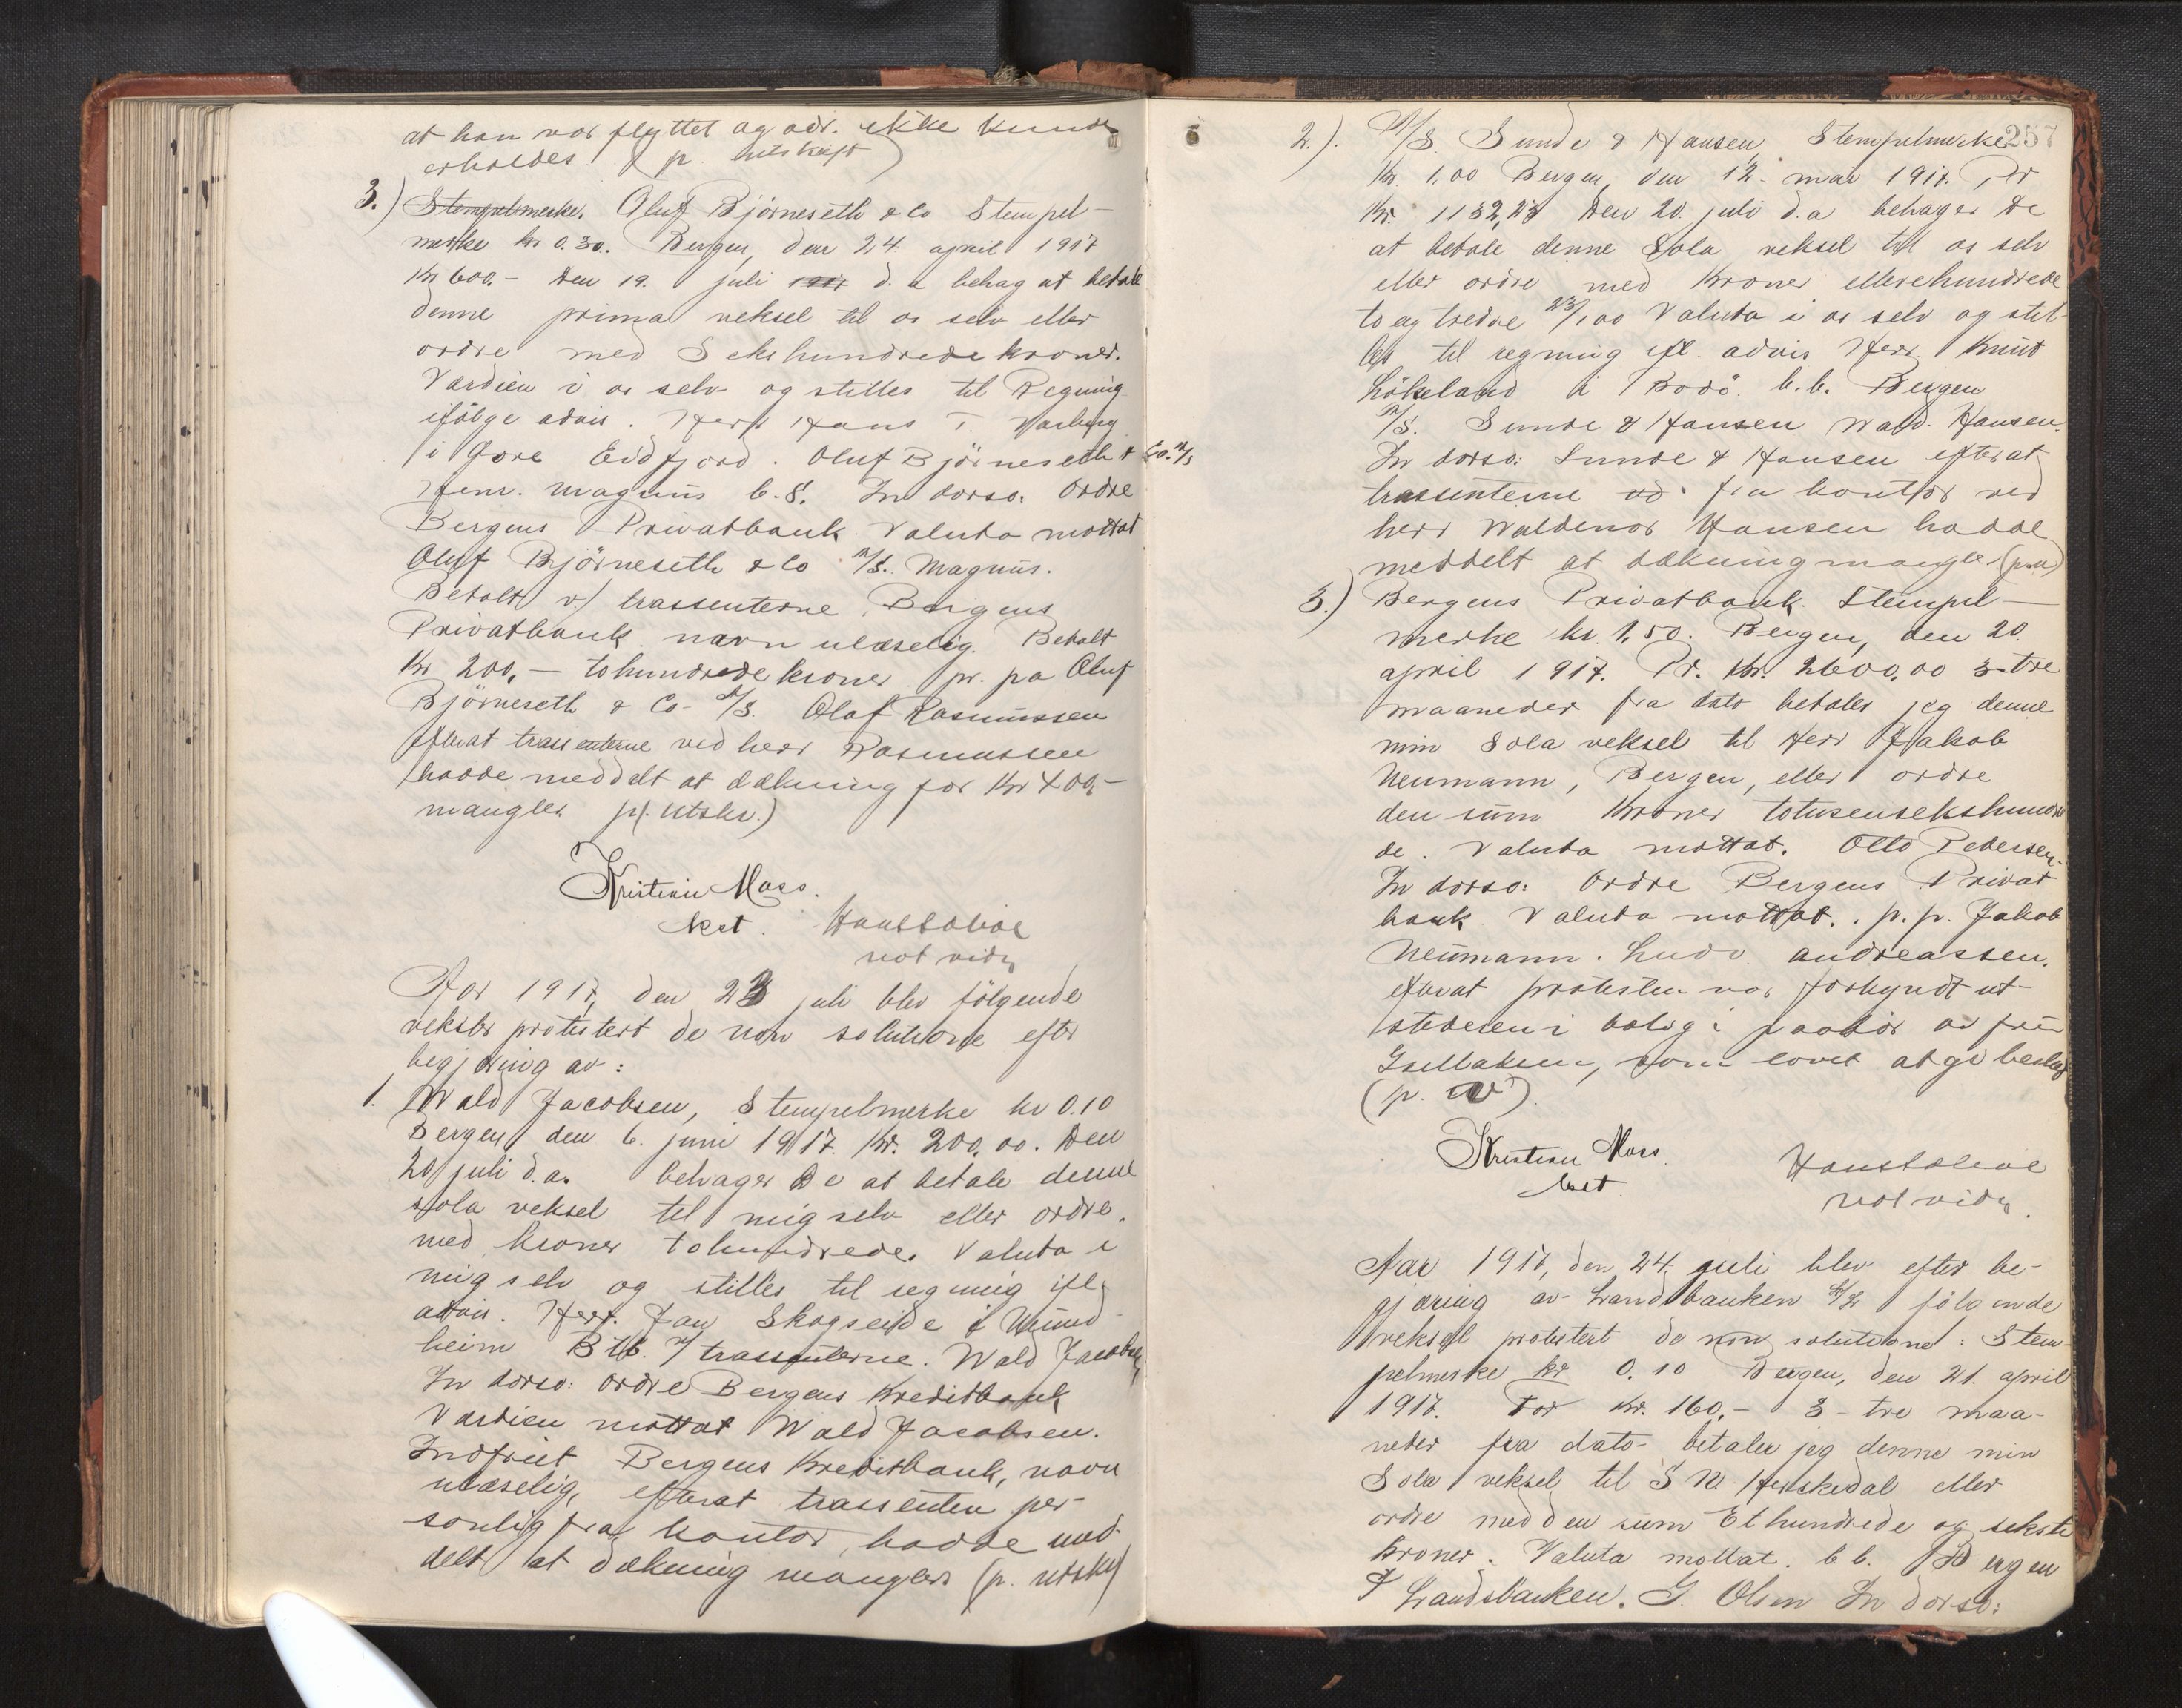 at han var flyttet og adr. ikke kunde
erholdes (p. utskrift)
3.) Stempelmerke. Oluf Björneseth & Co Stempel-
merke kr 0.30. Bergen, den 24 april 1917
Kr 600.- Den 19. juli 1917 d. a behag at betale
denne prima veksel til os selv eller
ordre med Sekshundrede kroner.
Værdien i os selv og stilles til Regning
ifölge advis. Herr Hans T.
i Övre Eidfjord. Oluf Björneseth & Co. A/S
Henr. Magnus b.S. In dorso: Ordre
Bergens Privatbank Valuta mottat
Oluf Björneseth & Co A/S. Magnus.
Betalt v/ trassenterne Bergens
Privatbank navn ulæselig. Betalt
Kr 200,- tohundrede kroner pr. pa Oluf
Björneseth & Co- A/S. Olaf Rasmussen
efterat trassenterne ved herr Rasmussen
hadde meddelt at dækning for Kr 400,-
mangler p. utskr.)
Kristian Mass.
kst. Haustabioe
not vidn
Aar 1917, den 23 juli blev fölgende
veksler protestert de non solutione efter
begjæring av:
1. Wald Jacobsen, Stempelmerke kr 0.10
Bergen den 6. juni 1917. Kr. 200.00. Den
20 juli d.a. behager De at betale denne
sola veksel til mig selv eller ordre.
med kroner tohundrede. Valuta i
mig selv og stilles til regning ifl.
advis. Herr. Jan Skogseide i Mund-
heim Btb. A/ trassenterne. Wald Jacobsen
In dorso: ordre Bergens Kreditbank
Værdien mottat Wald Jacobsen.
Indfriet Bergens Kreditbank, navn
ulæselig, efterat trassenten per-
sonlig fra kontor, hadde med-
delt at dækning mangler (p. utskr)
257
2.). A/S. Sunde & Hansen, Stempelmerke
Kr. 1.00 Bergen, den 12. mai 1917. Pr
Kr. 1132,23 Den 20. juli d.a behager De
at betale denne Sola veksel til os selv
eller ordre med Kroner ellevehundrede
to og tredve 23/100 Valuta i os selv og stil-
les til regning ifl. advis Herr. Knut
Lökeland i Bodö. b.b. Bergen
A/S. Sunde & Hansen Wald. Hansen.
In dorso: Sunde & Hansen efterat
trassenterne ad. fra kontor ved
herr Waldemar Hansen hadde
meddelt at dækning mangler (p.u)
3.) Bergens Privatbank. Stempel-
merke kr. 1,50. Bergen, den 20.
april 1917. Pr. Kr. 2600,00 3-tre
maaneder fra dato betaler jeg denne
min Sola veksel til Herr Jakob
Neumann, Bergen, eller ordre
den sum Kroner totusensekshundre
de. Valuta mottat. Otto Pedersen.
In dorso: Ordre Bergens Privat
bank Valuta mottat. . p.p. Jakob
Neumann. Ludv. Andreassen.
efterat protesten var forkyndt ut-
stederen i bolig i paahör av fru
Isellaksen, som lovet at gi beskjed
(p. u)
Kristian Mass.
kst.
Haustabioe
not vidn.
Aar 1917, den 24. juli blev efter be-
gjæring av Landsbanken A/S fölgende
veksel protestert de non solutione: Stem-
pelmerke kr 0.10 Bergen, den 21. april
1917. For Kr. 160,- 3-tre maa-
neder fra dato- betaler jeg denne min
Sola veksel til S N Herskedal eller
ordre med den sum Ethundrede og seksti
Kroner. Valuta mottat. b b. Bergen
Landsbanken. G. Olsen In dorso: